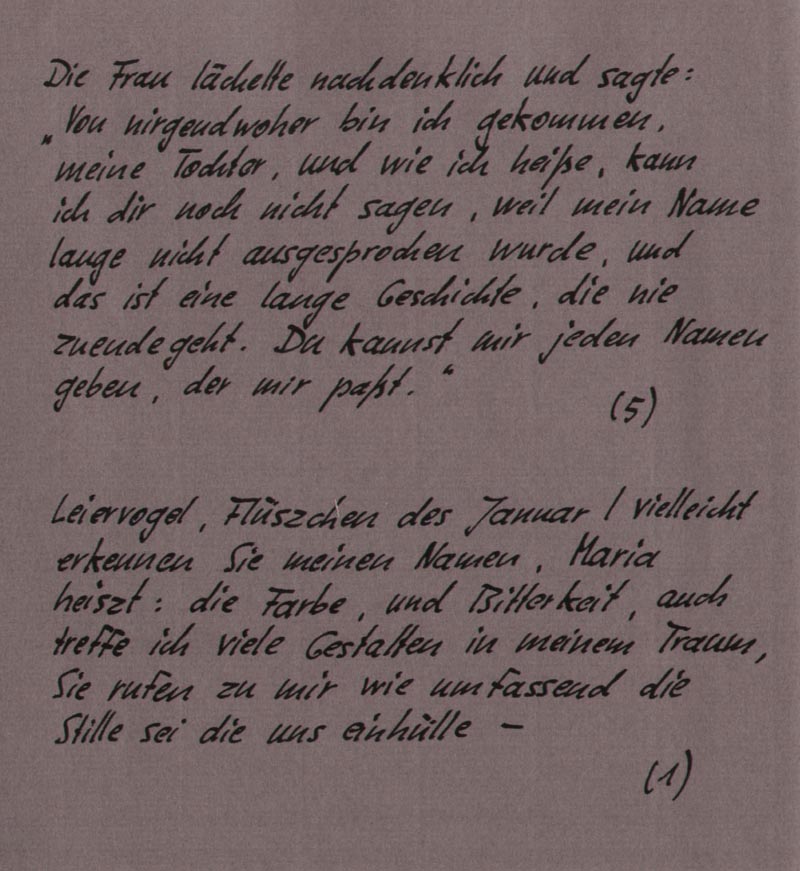 Die Frau lächelte nachdenklich und sagte:
„Von nirgendwoher bin ich gekommen,
meine Tochter, und wie ich heiße, kann
ich dir noch nicht sagen, weil mein Name
lange nicht ausgesprochen wurde, und
das ist eine lange Geschichte, die nie
zuende geht. Du kannst mir jeden Namen
geben, der mir paßt.“
(5)
Leiervogel, Flüszchen des Januar / vielleicht
erkennen Sie meinen Namen, Maria
heiszt: die Farbe, und Bitterkeit, auch
treffe ich viele Gestalten in meinem Traum,
Sie rufen zu mir wie umfassend die
Stille sei die uns einhülle –
(1)